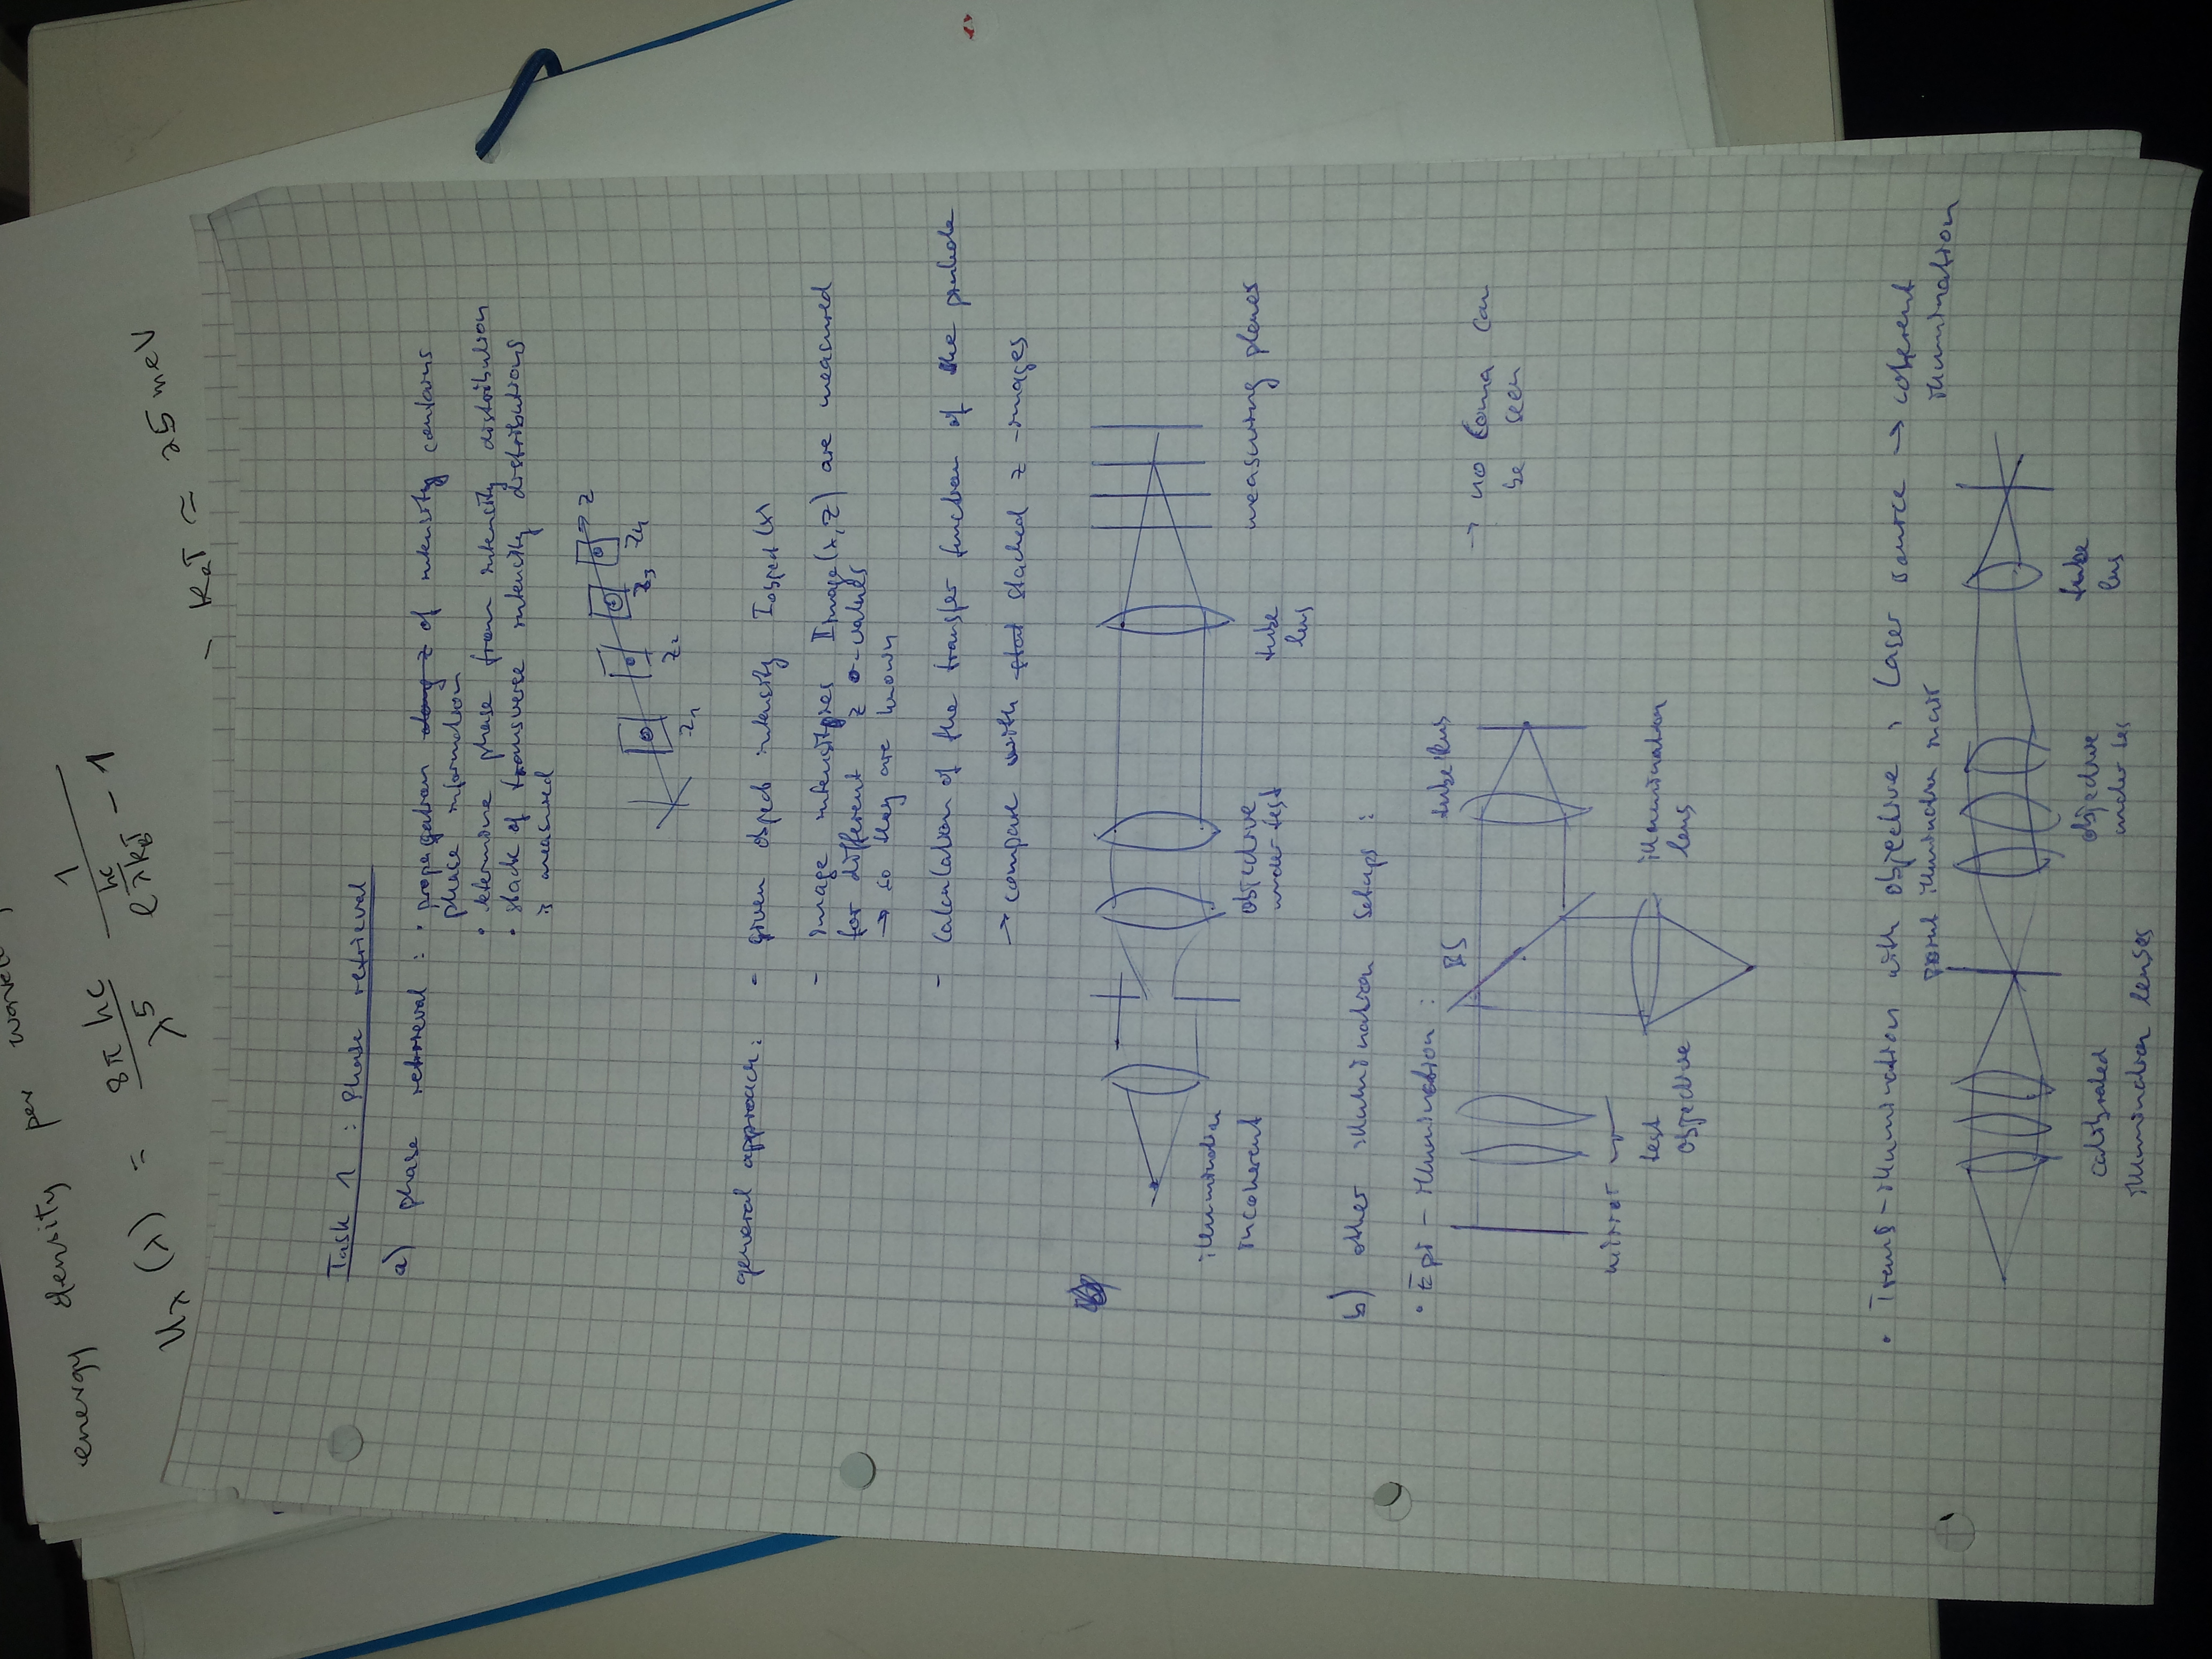 energy density per
u_λ (λ) = 8π hc / λ^5 1 / e^(hc/λk_BT) - 1
- k_BT ≈ 25 meV
Task 1 : Phase retrieval
a) phase retrieval : • propagation along z of intensity contains
phase information
• determine phase from intensity distribution
• stack of transverse intensity distributions
is measured
z
z1 z2 z3 z4
general approach: - given object intensity Iobject (x)
- image intensities Iimage(x, z) are measured
for different z -values
→ so they are known
- calculation of the transfer function of the pinhole
→ compare with stacked z -images
illumination
incoherent
objective
under test
tube
lens
measuring planes
b) other illumination setups :
• Epi - illumination :
BS
tube lens
→ no coma can
be seen
mirror
test
objective
illumination
lens
• Trans - illumination with objective , Laser source → coherent
illumination
point illumination
calibrated
illumination lenses
objective
under tes
tube
lens